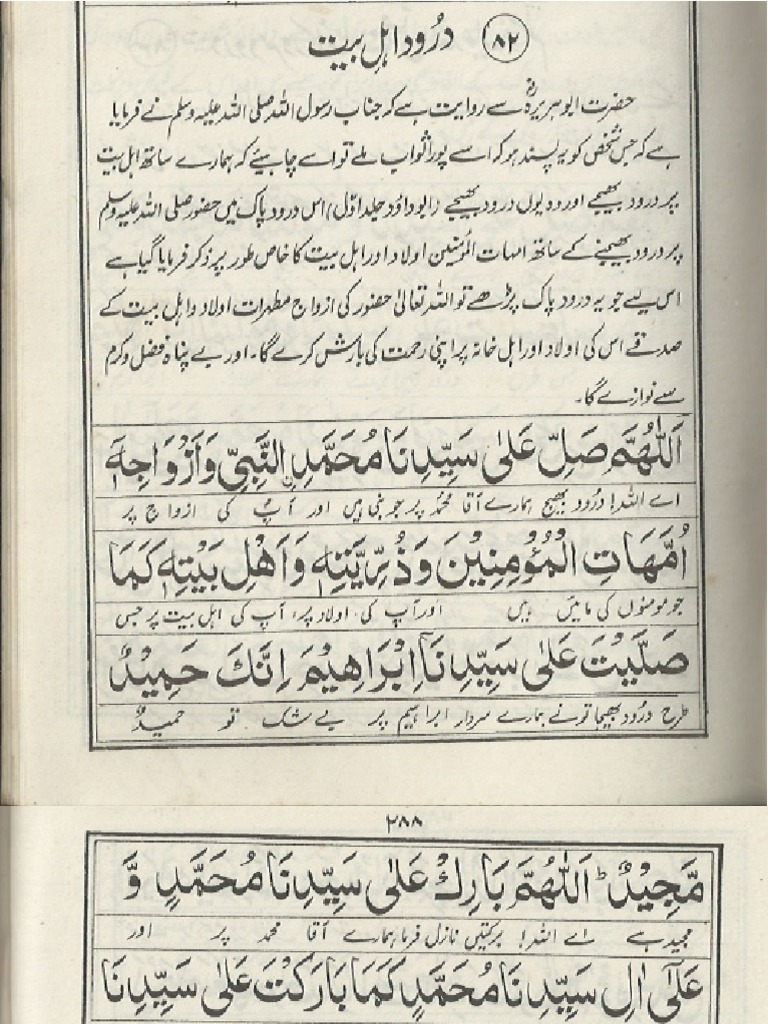 ۸۲ درود اہل بیت
حضرت ابوہریرہؓ سے روایت ہے کہ جناب رسول اللہ صلی اللہ علیہ وسلم نے فرمایا
ہے کہ جس شخص کو یہ پسند ہو کہ اسے پورا ثواب ملے تو اسے چاہیئے کہ ہمارے ساتھ اہل بیت
پر درود بھیجے اور وہ یوں درود بھیجے (ابوداؤد جلد اوّل) اس درود پاک میں حضور صلی اللہ علیہ وسلم
پر درود بھیجنے کے ساتھ امہات المؤمنین اولاد اور اہل بیت کا خاص طور پر ذکر فرمایا گیا ہے
اس لیے جو یہ درود پاک پڑھے تو اللہ تعالیٰ حضور کی ازواج مطہرات اولاد و اہل بیت کے
صدقے اس کی اولاد اور اہل خانہ پر اپنی رحمت کی بارش کرے گا۔ اور بے پناہ فضل و کرم
سے نوازے گا۔
اَللّٰهُمَّ صَلِّ عَلٰى سَيِّدِنَا مُحَمَّدِ ِۨالنَّبِيِّ وَاَزْوَاجِهٖ
اے اللہ! درود بھیج ہمارے آقا محمد پر جو نبی ہیں اور آپ کی ازواج پر
اُمَّهَاتِ الْمُؤْمِنِيْنَ وَذُرِّيَّتِهٖ وَاَهْلِ بَيْتِهٖ كَمَا
جو مومنوں کی مائیں ہیں اور آپ کی اولاد پر، آپ کی اہل بیت پر جس
صَلَّيْتَ عَلٰى سَيِّدِنَآ اِبْرَاهِيْمَ اِنَّكَ حَمِيْدٌ
طرح درود بھیجا تو نے ہمارے سردار ابراہیم پر بے شک تو حمیدٌ
۲۸۸
مَّجِيْدٌ ؕ اَللّٰهُمَّ بَارِكْ عَلٰى سَيِّدِنَا مُحَمَّدٍ وَّ
مجید ہے اے اللہ! برکتیں نازل فرما ہمارے آقا محمد پر اور
عَلٰٓى اٰلِ سَيِّدِنَا مُحَمَّدٍ كَمَا بَارَكْتَ عَلٰى سَيِّدِنَا